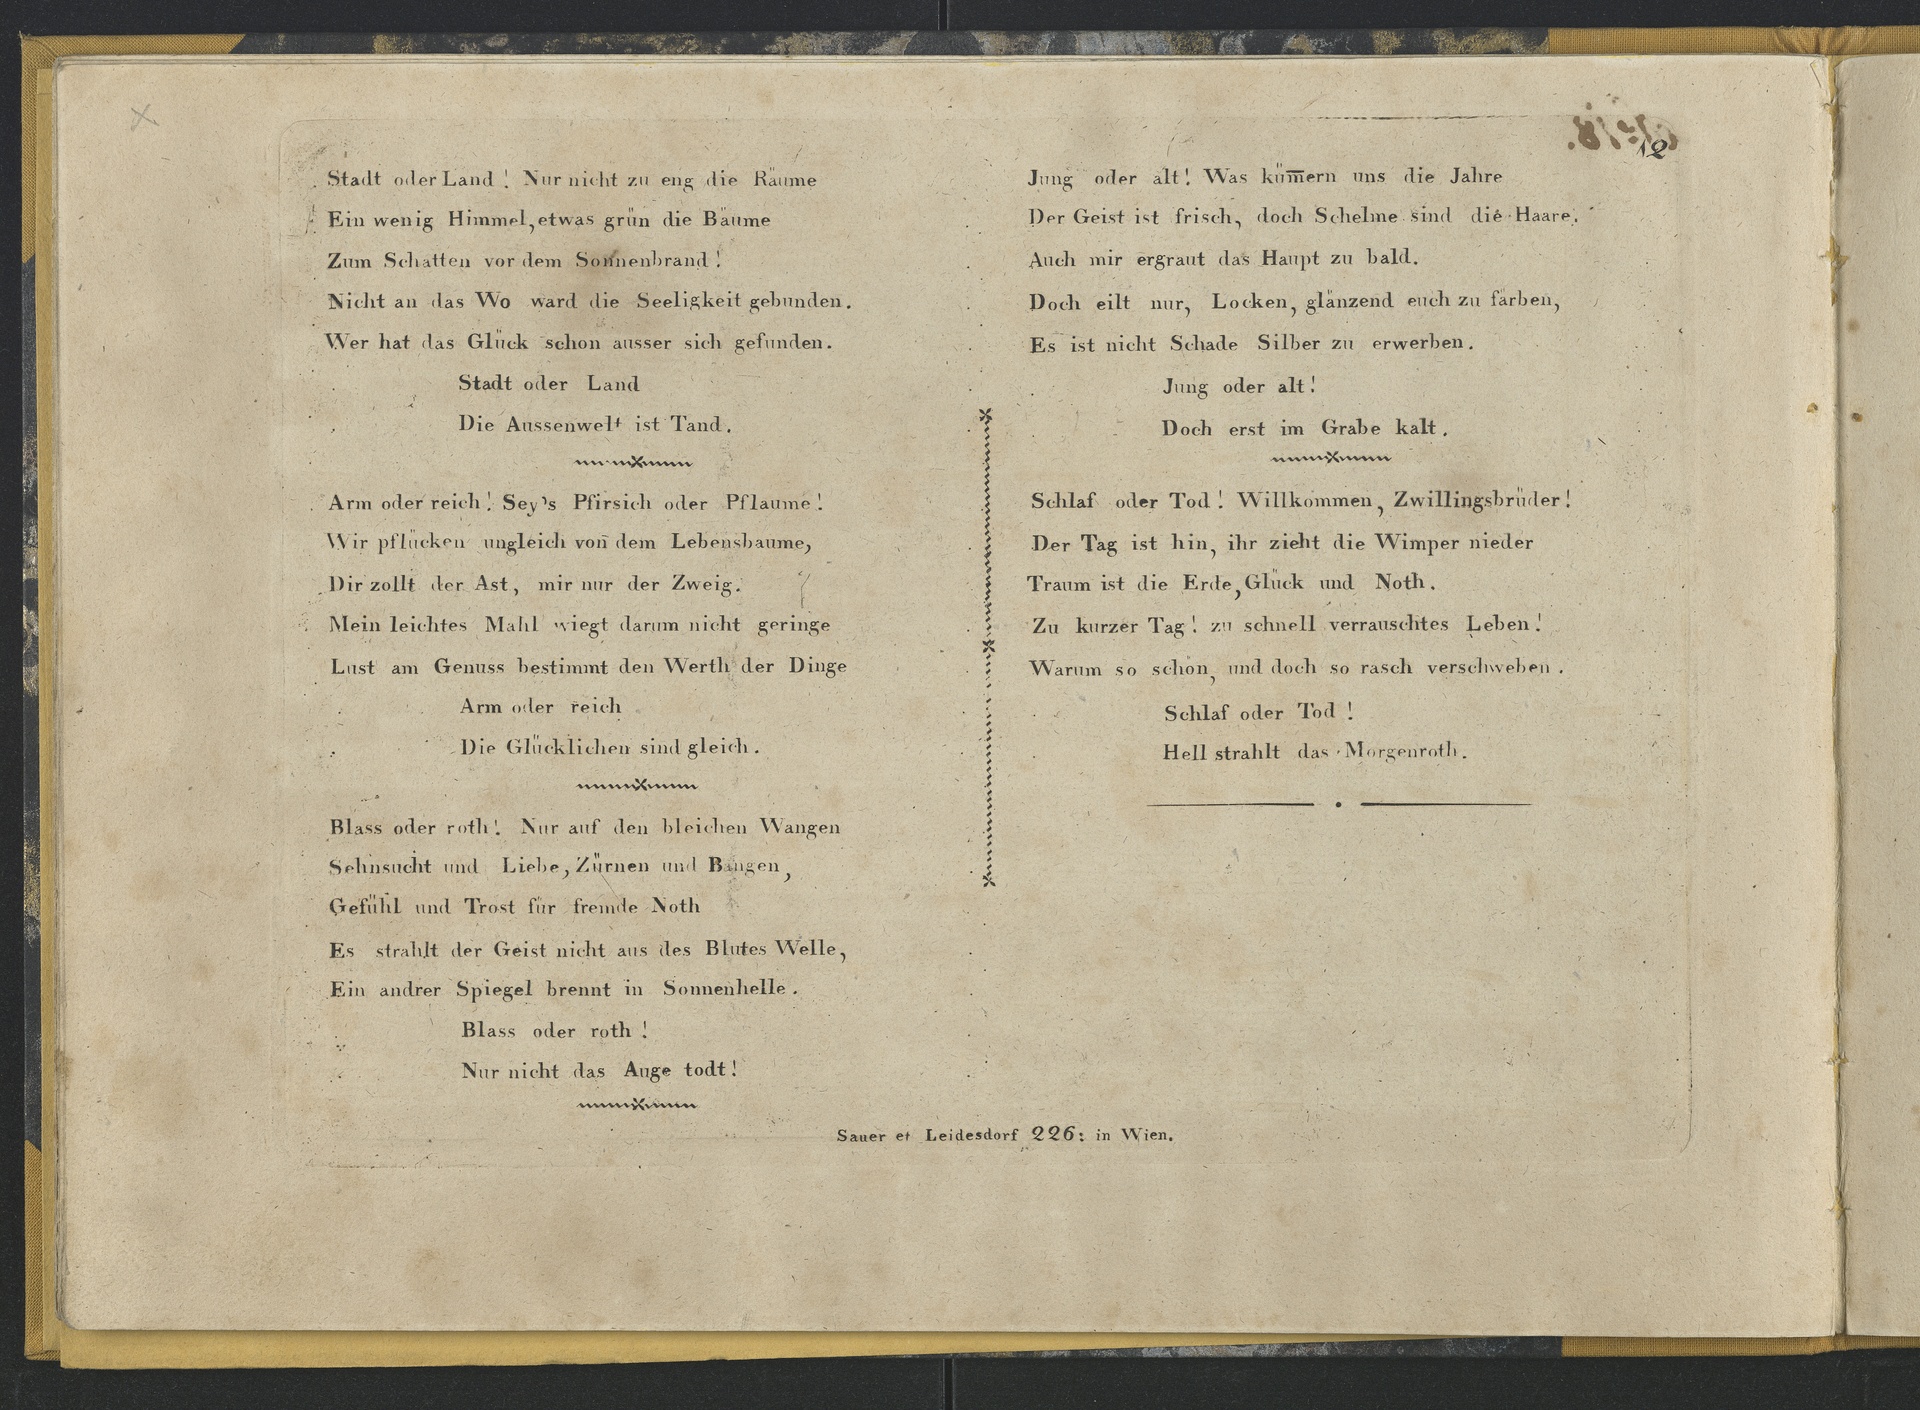 Stadt oder Land! Nur nicht zu eng die Räume
Ein wenig Himmel, etwas grün die Bäume
Zum Schatten vor dem Sonnenbrand!
Nicht an das Wo ward die Seeligkeit gebunden.
Wer hat das Glück schon ausser sich gefunden.
Stadt oder Land
Die Aussenwelt ist Tand.
Arm oder reich! Sey's Pfirsich oder Pflaume!
Wir pflücken ungleich von dem Lebensbaume,
Dir zollt der Ast, mir nur der Zweig.
Mein leichtes Mahl wiegt darum nicht geringe
Lust am Genuss bestimmt den Werth der Dinge
Arm oder reich
Die Glücklichen sind gleich.
Blass oder roth! Nur auf den bleichen Wangen
Sehnsucht und Liebe, Zürnen und Bangen,
Gefühl und Trost für fremde Noth
Es strahlt der Geist nicht aus des Blutes Welle,
Ein andrer Spiegel brennt in Sonnenhelle.
Blass oder roth!
Nur nicht das Auge todt!
12
Jung oder alt! Was küm̅ern uns die Jahre
Der Geist ist frisch, doch Schelme sind die Haare.
Auch mir ergraut das Haupt zu bald.
Doch eilt nur, Locken, glänzend euch zu färben,
Es ist nicht Schade Silber zu erwerben.
Jung oder alt!
Doch erst im Grabe kalt.
Schlaf oder Tod! Willkommen, Zwillingsbrüder!
Der Tag ist hin, ihr zieht die Wimper nieder
Traum ist die Erde, Glück und Noth.
Zu kurzer Tag! zu schnell verrauschtes Leben!
Warum so schön, und doch so rasch verschweben.
Schlaf oder Tod!
Hell strahlt das Morgenroth.
Sauer et Leidesdorf 226: in Wien.